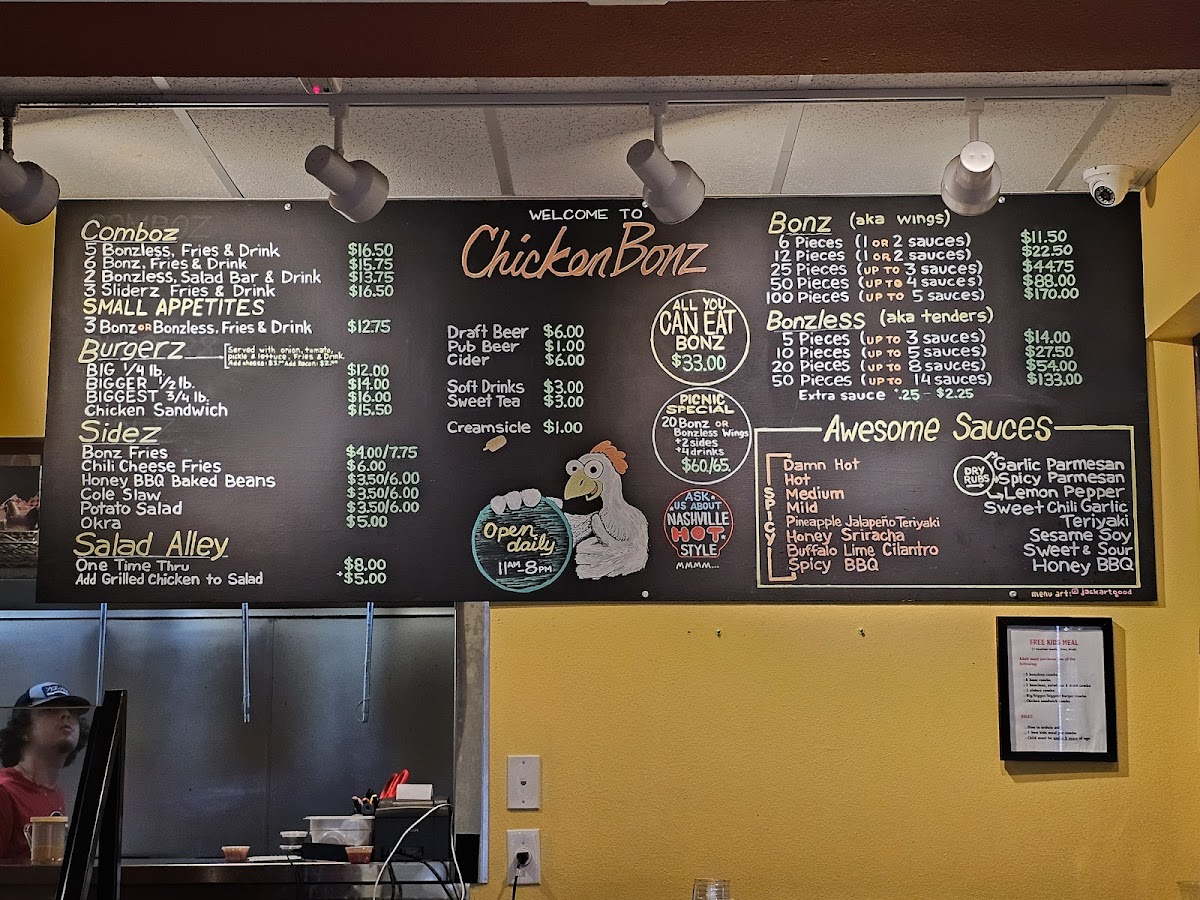 WELCOME TO
ChickenBonz
Comboz
5 Bonzless, Fries & Drink $16.50
6 Bonz, Fries & Drink $15.75
2 Bonzless, Salad Bar & Drink $13.75
3 Sliderz, Fries & Drink $16.50
SMALL APPETITES
3 Bonz OR Bonzless, Fries & Drink $12.75
Burgerz
Served with onion, tomato,
pickle & lettuce, Fries & Drink
BIG 1/4 lb. $12.00
BIGGER 1/2 lb. $14.00
BIGGEST 3/4 lb. $16.00
Chicken Sandwich $15.50
Sidez
Bonz Fries $4.00/7.75
Chili Cheese Fries $6.00
Honey BBQ Baked Beans $3.50/6.00
Cole Slaw $3.50/6.00
Potato Salad $3.50/6.00
Okra $5.00
Salad Alley
One Time Thru $8.00
Add Grilled Chicken to Salad +$5.00
Draft Beer $6.00
Pub Beer $1.00
Cider $6.00
Soft Drinks $3.00
Sweet Tea $3.00
Creamsicle $1.00
Open
daily
11AM-8PM
ALL YOU
CAN EAT
BONZ
$33.00
PICNIC
SPECIAL
20 Bonz OR
Bonzless Wings
+2 sides
+4 drinks
$60/65
ASK
US ABOUT
NASHVILLE
HOT
STYLE
MMMM...
Bonz (aka wings)
6 Pieces (1 OR 2 sauces) $11.50
12 Pieces (1 OR 2 sauces) $22.50
25 Pieces (UP TO 3 sauces) $44.75
50 Pieces (UP TO 4 sauces) $88.00
100 Pieces (UP TO 5 sauces) $170.00
Bonzless (aka tenders)
5 Pieces (UP TO 3 sauces) $14.00
10 Pieces (UP TO 5 sauces) $27.50
20 Pieces (UP TO 8 sauces) $54.00
50 Pieces (UP TO 14 sauces) $133.00
Extra sauce $.25 - $2.25
Awesome Sauces
SPICY
Damn Hot
Hot
Medium
Mild
Pineapple Jalapeño Teriyaki
Honey Sriracha
Buffalo Lime Cilantro
Spicy BBQ
DRY
RUBS
Garlic Parmesan
Spicy Parmesan
Lemon Pepper
Sweet Chili Garlic
Teriyaki
Sesame Soy
Sweet & Sour
Honey BBQ
menu art: @jackartgood
FREE KIDS MEAL